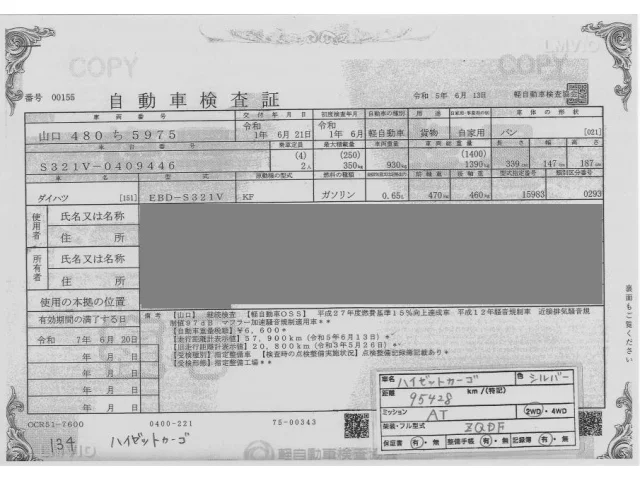 COPY
LMVIO
COPY
番号 00155
自動車検査証
令和 5年 6月 13日 軽自動車検査協会
車両番号 交付年月日 初度検査年月 自動車の種別 用途 自家用・事業用の別 車体の形状
山口 480 ち 5975 令和 1年 6月 21日 令和 1年 6月 軽自動車 貨物 自家用 バン [021]
車台番号 乗車定員 最大積載量 車両重量 車両総重量 長さ 幅 高さ
S321V-0409446 (4) 2人 (250) 350kg 930kg (1400) 1390kg 339cm 147cm 187cm
車名 型式 原動機の型式 燃料の種類 前軸重 後軸重 型式指定番号 類別区分番号
ダイハツ [151] EBD-S321V KF ガソリン 0.65L 470kg 460kg 15983 0293
使用者 氏名又は名称
住所
所有者 氏名又は名称
住所
使用の本拠の位置
裏面もご覧ください
有効期間の満了する日
備考 【山口】 継続検査 【軽自動車OSS】 平成27年度燃費基準15%向上達成車 平成12年騒音規制車 近接排気騒音規
制値97dB マフラー加速騒音規制適用車**
【自動車重量税額】¥6,600*
【走行距離計表示値】57,900km(令和5年6月13日)*
【旧走行距離計表示値】20,800km(令和3年5月26日)**
【受検種別】指定整備車 【検査時の点検整備実施状況】点検整備記録簿記載あり*
【受検形態】指定整備工場**
令和 7年 6月 20日
年 月 日
年 月 日
年 月 日
車名 ハイゼットカーゴ 色 シルバー
距離 95428 km/(特記)
ミッション AT 2WD・4WD
架装・フル型式 ZQDF
保証書 有・無 整備手帳 有・無 記録簿 有・無
OCR51-7600 0400-221 75-00343
134 ハイゼットカーゴ
軽自動車検査